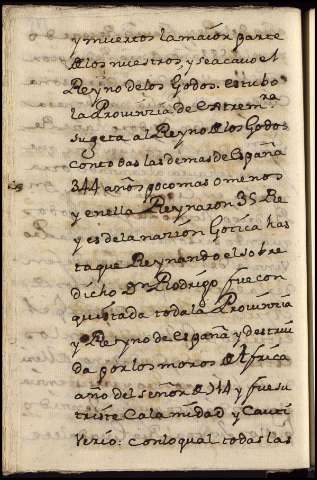 y muertos la maior parte
de los nuestros, y se acavo el
Reyno de los Godos. estubo
la Provinzia de Extrem.ra
sugeta al Reyno de los Godos
con todas las demas de España
344 años poco mas o menos
y en ella Reynaron 35 Re
yes de la nazion Gotica has
ta que Reynando el sobre
dicho Dn Rodrigo fue con
quistada toda la Provinzia
y Reyno de España y destrui
da por los moros de Africa
año del señor de 714 y fue su
triste Calamidad y Cauti
verio: con lo qual todas las